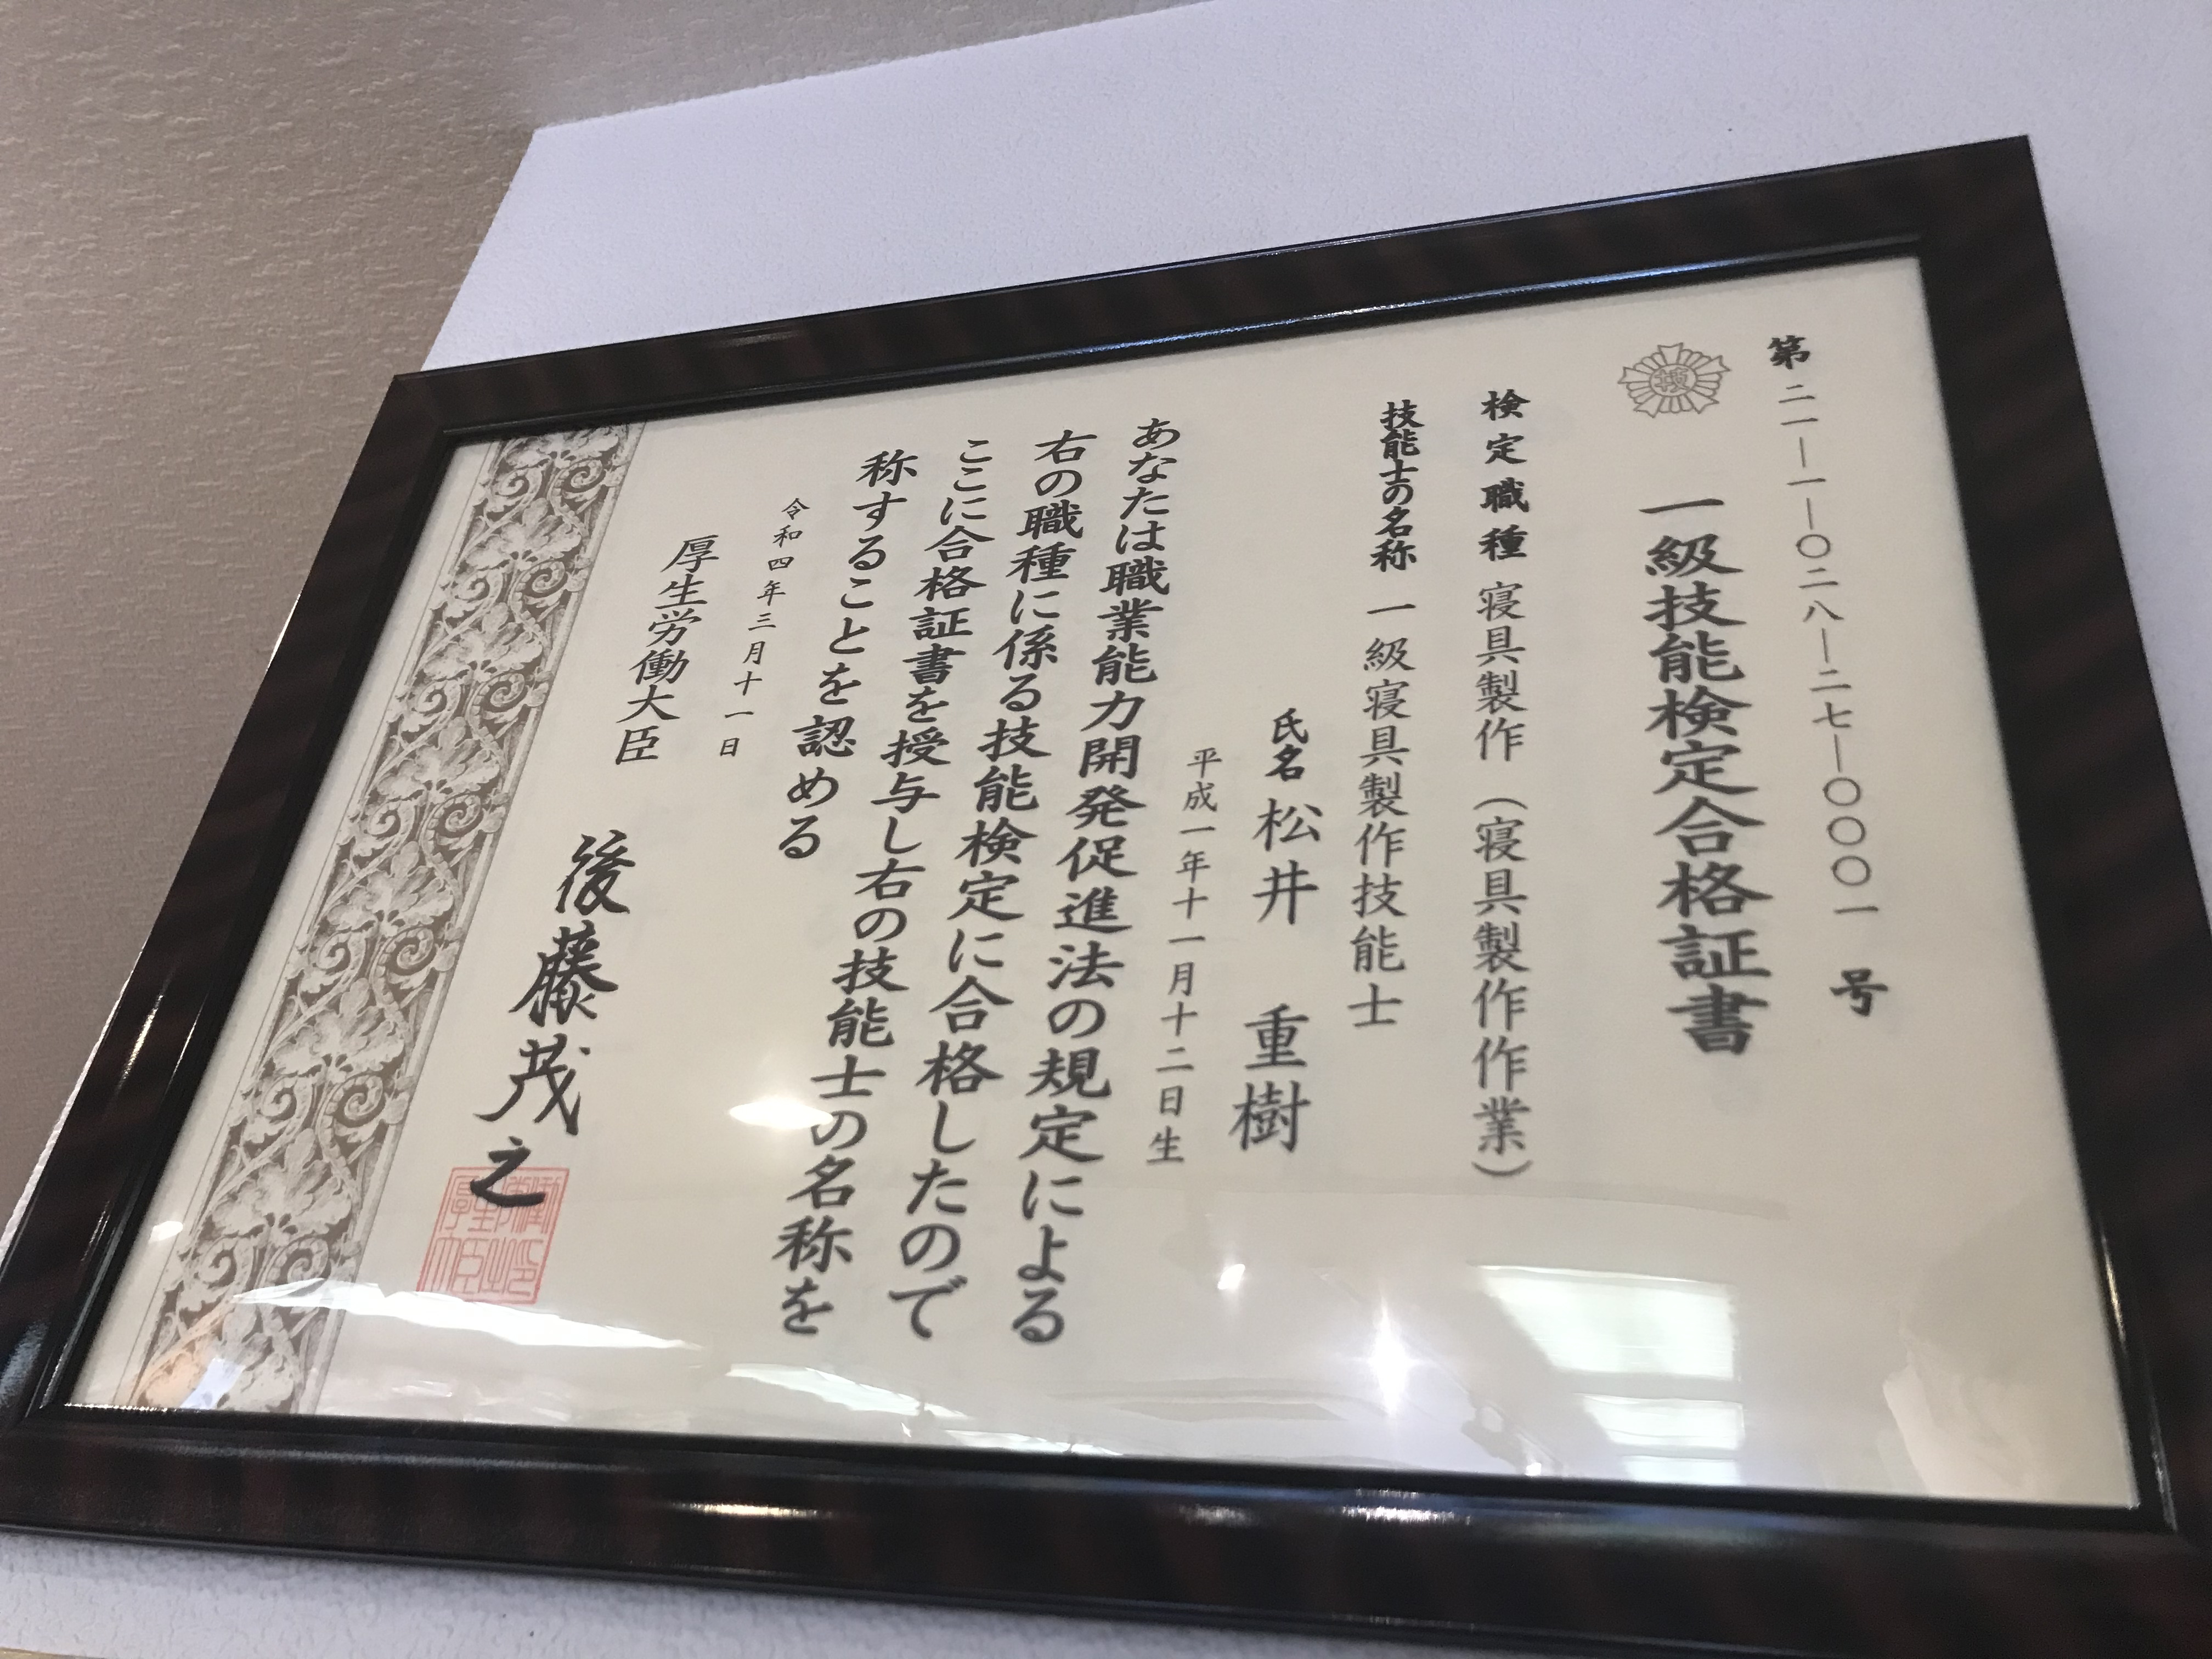 第二一―一―〇二八―二七―〇〇〇一号
技
一級技能検定合格証書
検定職種 寝具製作（寝具製作作業）
技能士の名称 一級寝具製作技能士
氏名 松井 重樹
平成一年十一月十二日生
あなたは職業能力開発促進法の規定による
右の職種に係る技能検定に合格したので
ここに合格証書を授与し右の技能士の名称を
称することを認める
令和四年三月十一日
厚生労働大臣 後藤茂之